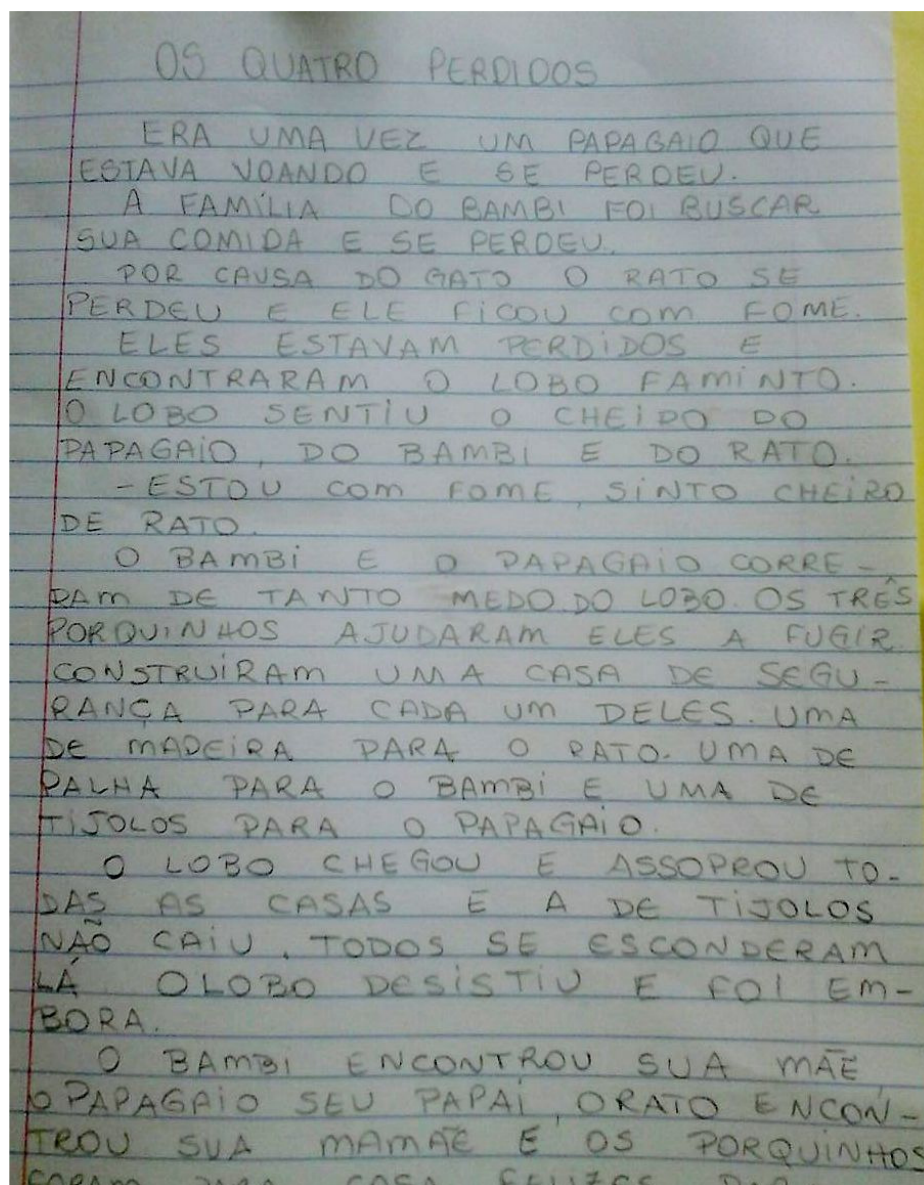 OS QUATRO PERDIDOS
ERA UMA VEZ UM PAPAGAIO QUE
ESTAVA VOANDO E SE PERDEU.
A FAMÍLIA DO BAMBI FOI BUSCAR
SUA COMIDA E SE PERDEU.
POR CAUSA DO GATO O RATO SE
PERDEU E ELE FICOU COM FOME.
ELES ESTAVAM PERDIDOS E
ENCONTRARAM O LOBO FAMINTO.
O LOBO SENTIU O CHEIRO DO
PAPAGAIO, DO BAMBI E DO RATO.
- ESTOU COM FOME, SINTO CHEIRO
DE RATO.
O BAMBI E O PAPAGAIO CORRE-
RAM DE TANTO MEDO DO LOBO. OS TRÊS
PORQUINHOS AJUDARAM ELES A FUGIR.
CONSTRUIRAM UMA CASA DE SEGU-
RANÇA PARA CADA UM DELES. UMA
DE MADEIRA PARA O RATO. UMA DE
PALHA PARA O BAMBI E UMA DE
TIJOLOS PARA O PAPAGAIO.
O LOBO CHEGOU E ASSOPROU TO-
DAS AS CASAS E A DE TIJOLOS
NÃO CAIU. TODOS SE ESCONDERAM
LÁ O LOBO DESISTIU E FOI EM-
BORA.
O BAMBI ENCONTROU SUA MÃE
O PAPAGAIO SEU PAPAI, O RATO ENCON-
TROU SUA MAMÃE E OS PORQUINHOS
PARA CASA FELIZES